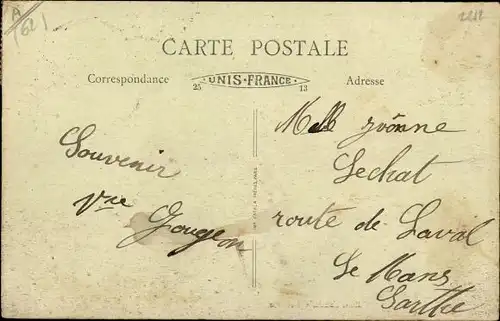 A
(62)
CARTE POSTALE
Correspondance
UNIS-FRANCE
25
13
Adresse
Souvenir
Vve Gougeon
Melle Yvonne
Lechat
route de Laval
Le Mans
Sarthe